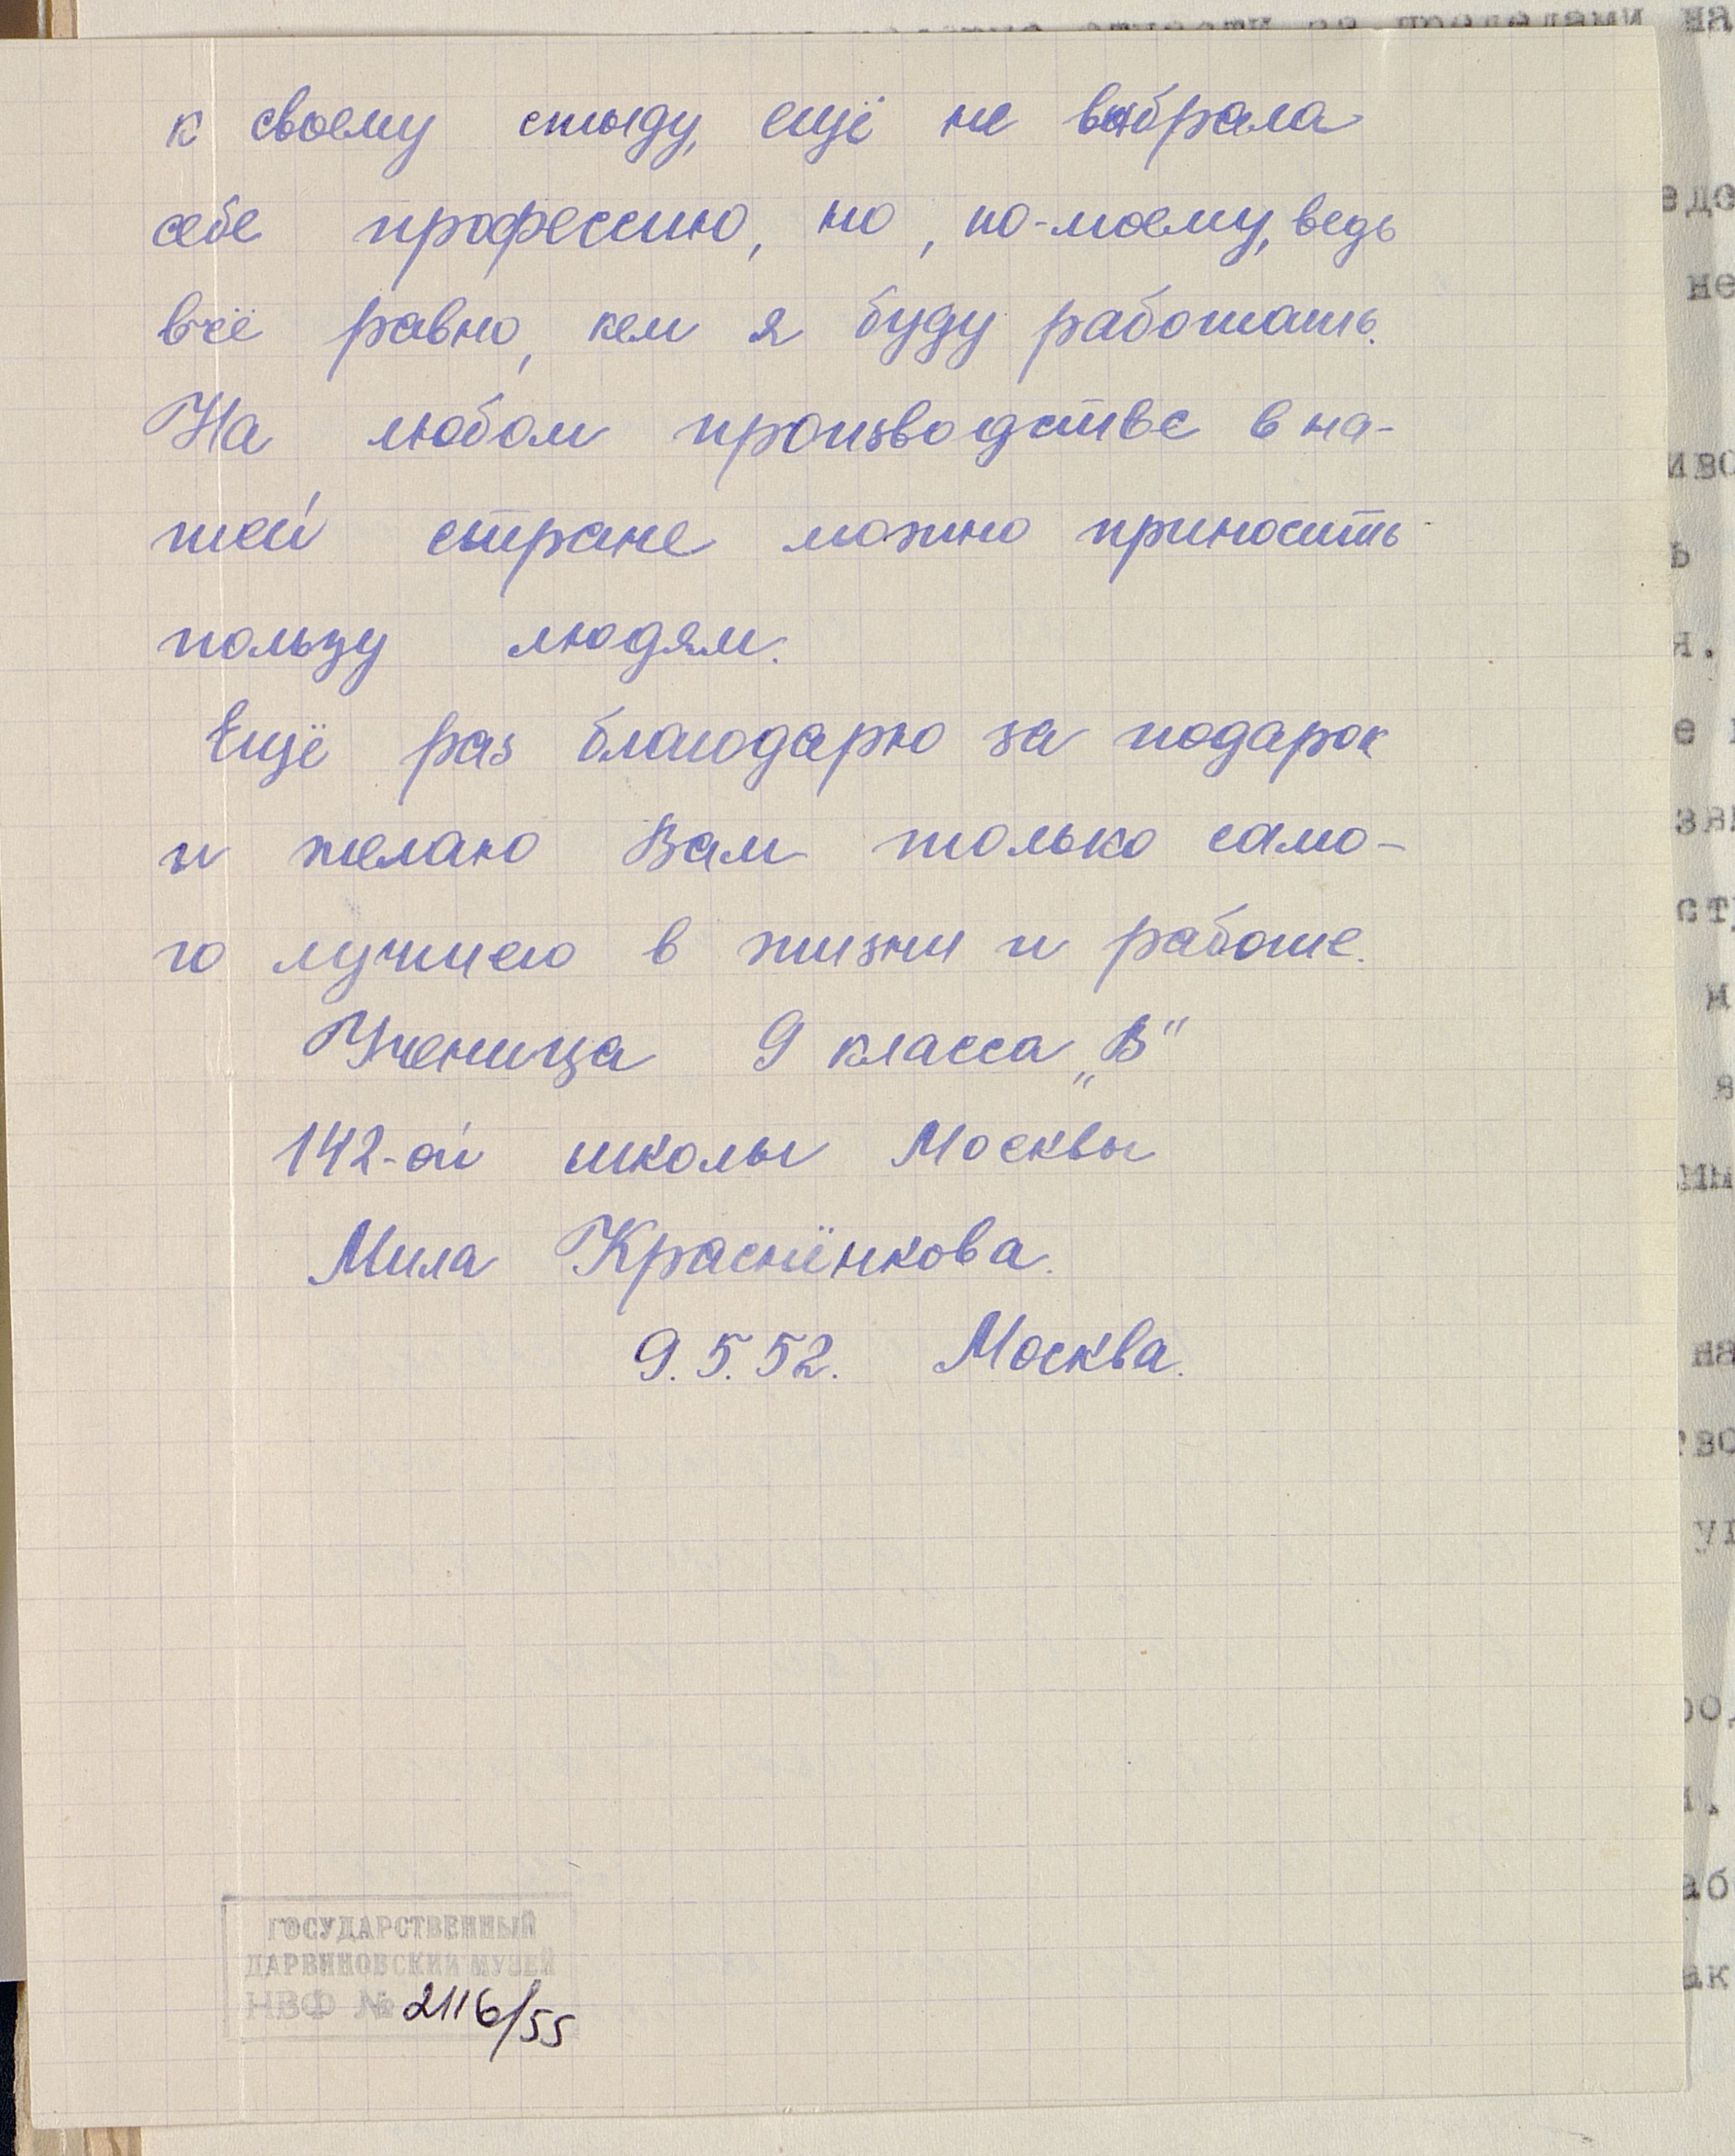 к своему стыду, ещё не выбрала
себе профессию, но, по-моему, ведь
всё равно, кем я буду работать.
На любом производстве в на-
шей стране можно приносить
пользу людям.
Ещё раз благодарю за подарок
и желаю Вам только само-
го лучшего в жизни и работе.
Ученица 9 класса „В"
142-ой школы Москвы
Мила Краснёнкова.
9.5.52. Москва.
ГОСУДАРСТВЕННЫЙ
ДАРВИНОВСКИЙ МУЗЕЙ
НВФ № 2116/55